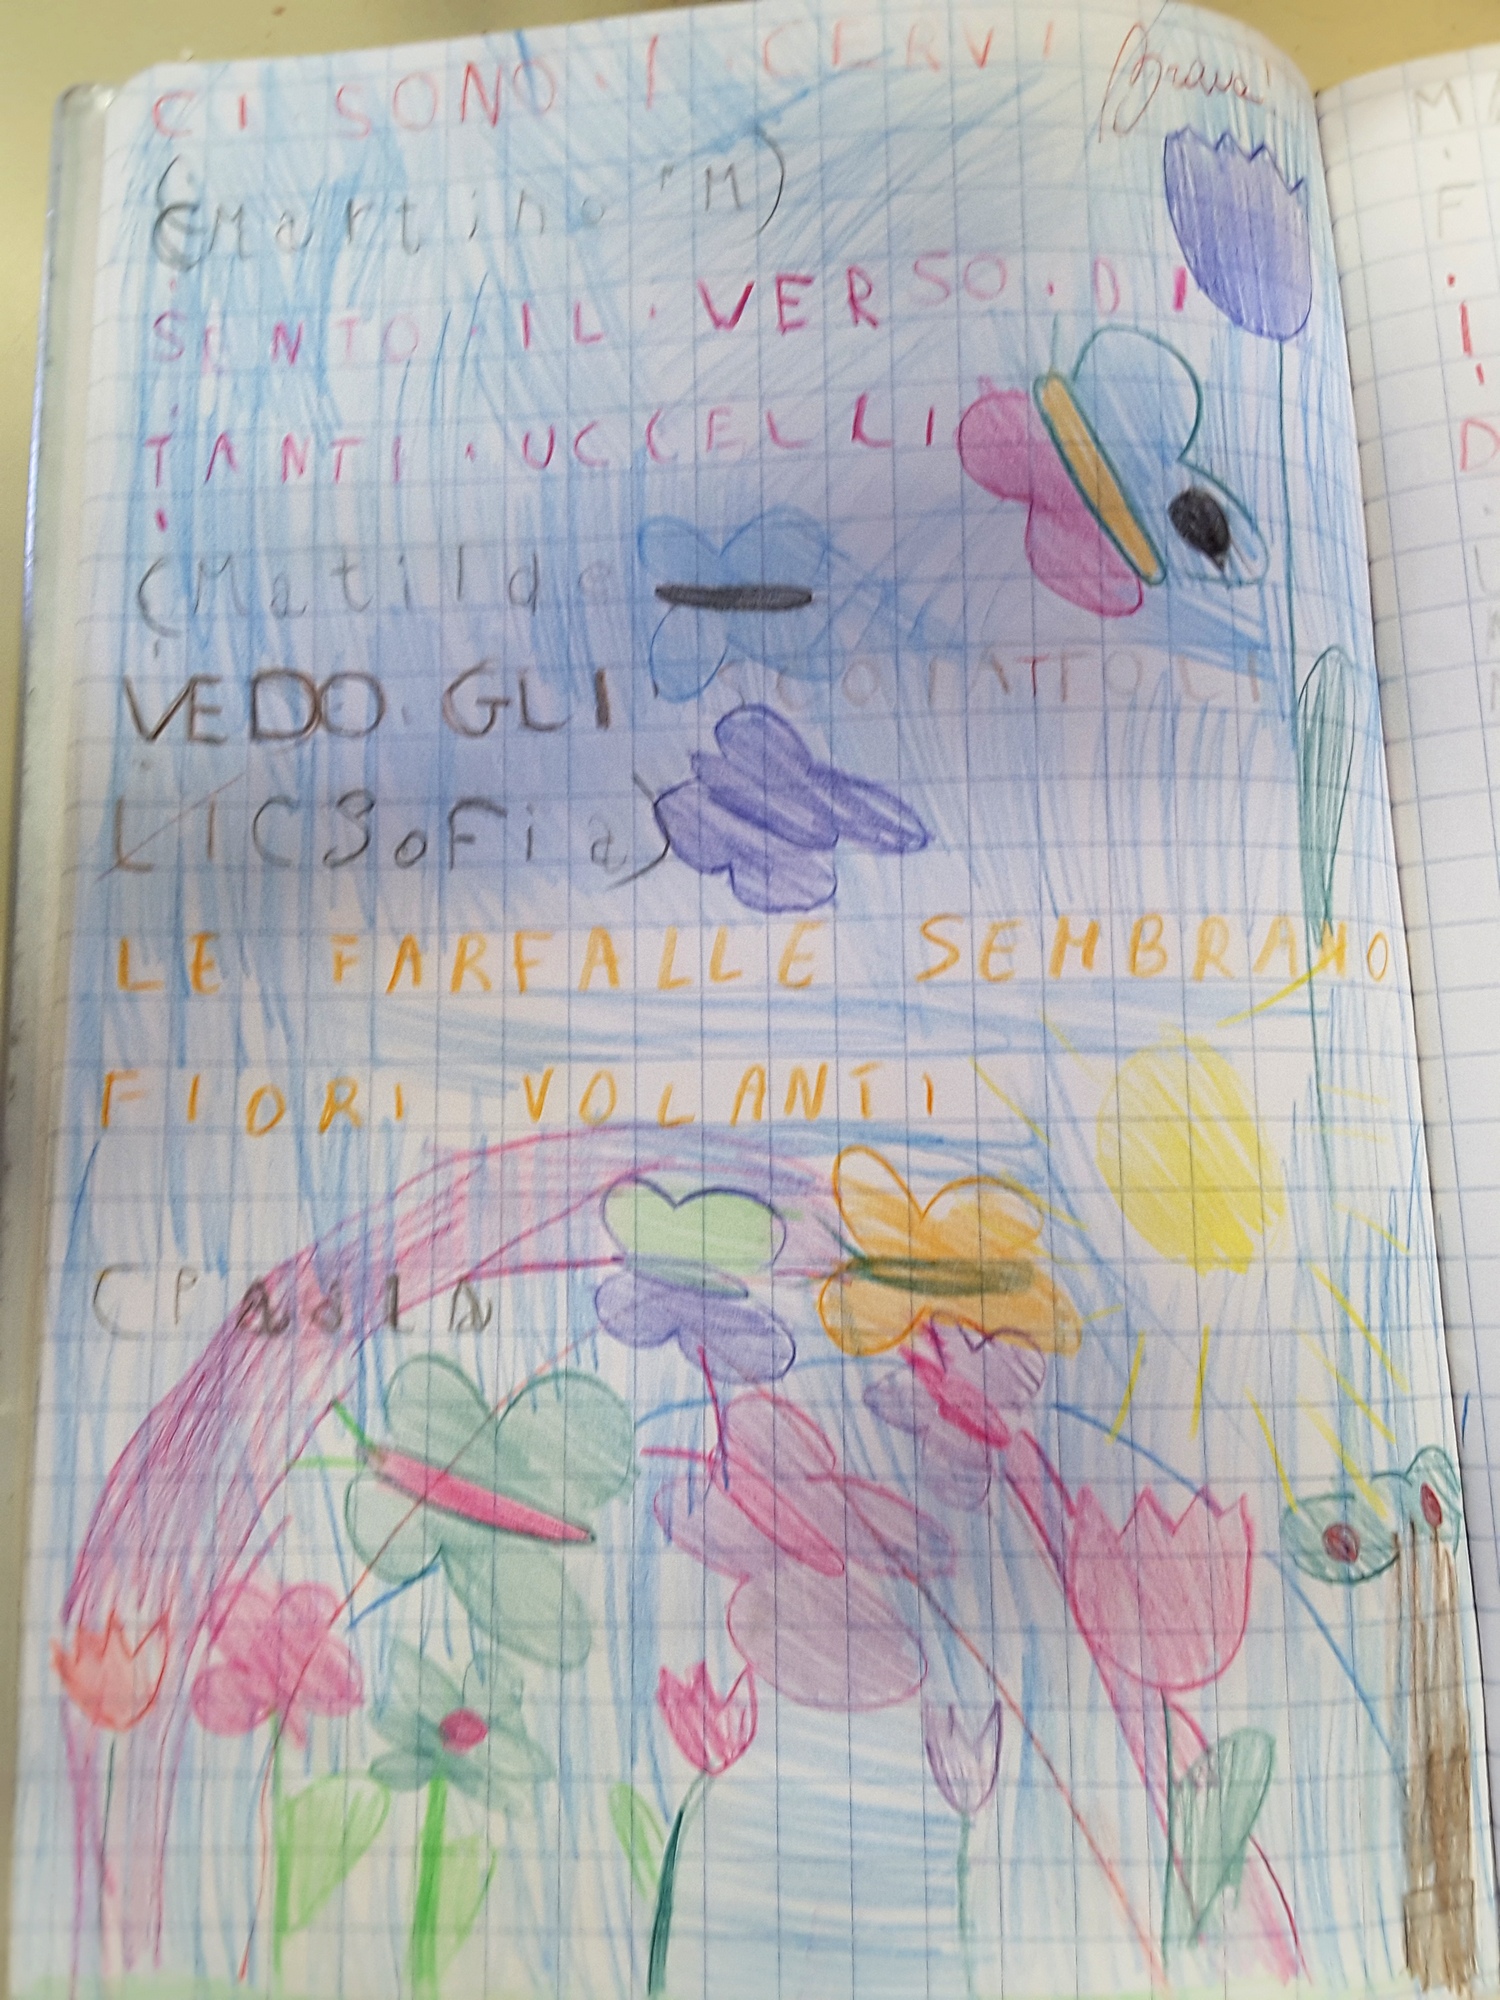 CI · SONO · I · CERVI
Brava!
(Martino M)
SENTO · IL · VERSO · DI
TANTI · UCCELLI
(Matilde
VEDO · GLI · SCOIATTOLI
Sofia)
LE FARFALLE SEMBRANO
FIORI VOLANTI
(Paola